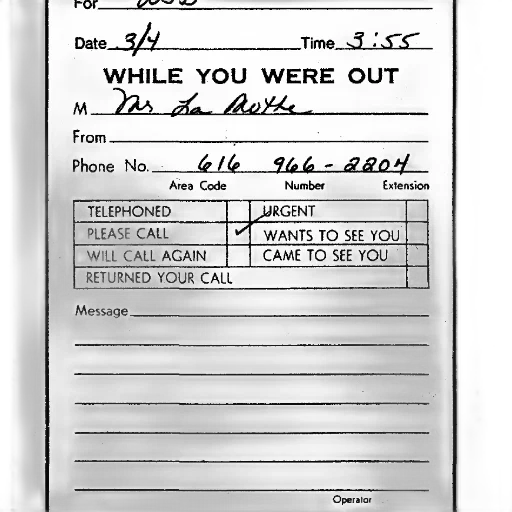 For
Date 3/4 Time 3:55
WHILE YOU WERE OUT
M Mr La Mothe
From
Phone No. 616 966-2204
Area Code Number Extension
TELEPHONED URGENT
PLEASE CALL ✓ WANTS TO SEE YOU
WILL CALL AGAIN CAME TO SEE YOU
RETURNED YOUR CALL
Message
Operator